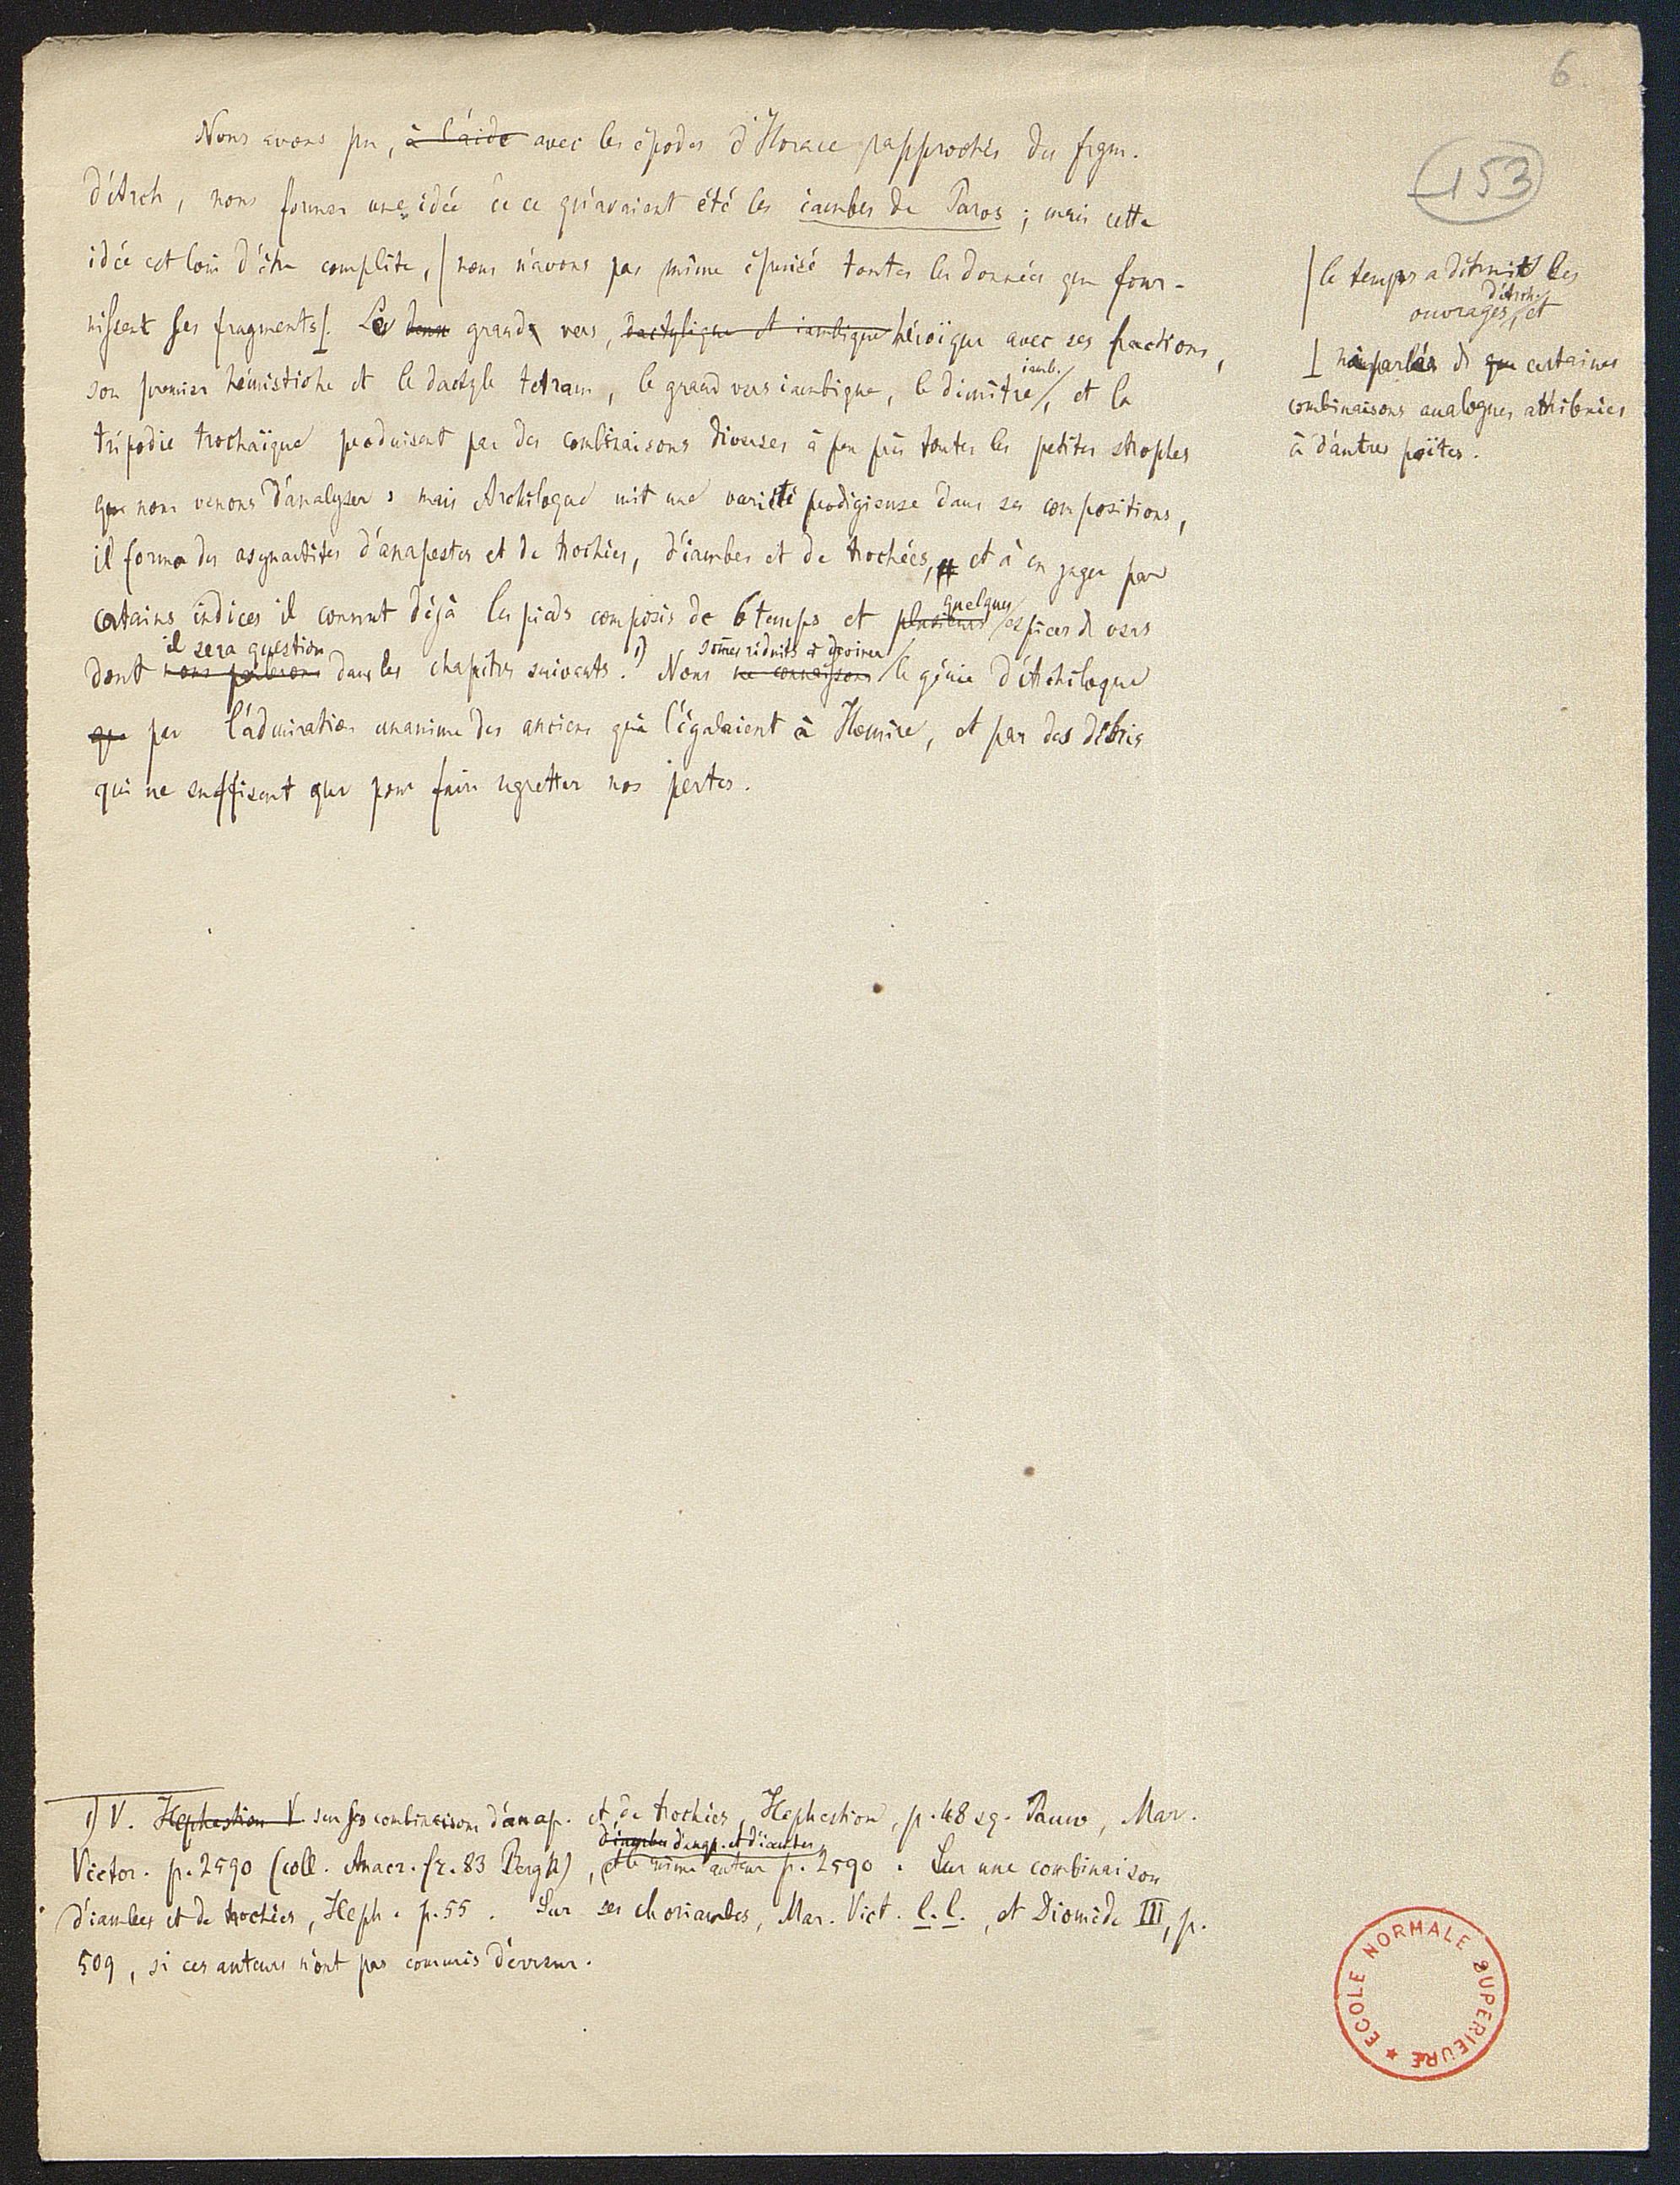 6
153
Nous avons pu, à l'aide avec les épodes d'Horace rapprochés des fragm.
d'Arch, nous former une idée de ce qu'avaient été les iambes de Paros ; mais cette
idée est loin d'être complète, | nous n'avons pas même épuisé toutes les données que four-
nissent ses fragments ⌊. Le deux grand vers, dactylique et iambique héroïque avec ses fractions,
son premier hémistiche et le dactyle tetram, le grand vers iambique, le dimètre / iamb. /, et la
tripodie trochaïque produisent par des combinaisons diverses à peu près toutes les petites strophes
que nous venons d'analyser ; mais Archiloque mit une variété prodigieuse dans ses compositions,
il forma des asynartètes d'anapestes et de trochées, d'iambes et de trochées, et à en juger par
certains indices il connut déjà les pieds composés de 6 temps et plusieurs / quelques / espèces de vers
dont nous parlerons il sera question dans les chapitres suivants. 1) Nous ne connaissons sommes réduits à deviner / le génie d'Archiloque
que par l'admiration unanime des anciens qui l'égalaient à Homère, et par des débris
qui ne suffisent que pour faire regretter nos pertes.
| le temps a détruit les
ouvrages / d'Arch. /, et
⌊ ni parler de que certaines
combinaisons analogues attribuées
à d'autres poëtes.
1) V. Hephestion V. sur ses combinaisons d'anap. et de trochées, Hephestion, p. 48 sq. Pauw, Mar.
Victor. p. 2590 (coll. Anacr. fr. 83 Bergk), d'iambes d'anap. et d'iambes, et le même auteur p. 2590. Sur une combinaison
d'iambes et de trochées, Heph. p. 55. Sur ses choriambes, Mar. Vict. l. l., et Diomède III, p.
509, si ces auteurs n'ont pas commis d'erreur.
ECOLE NORMALE SUPERIEURE